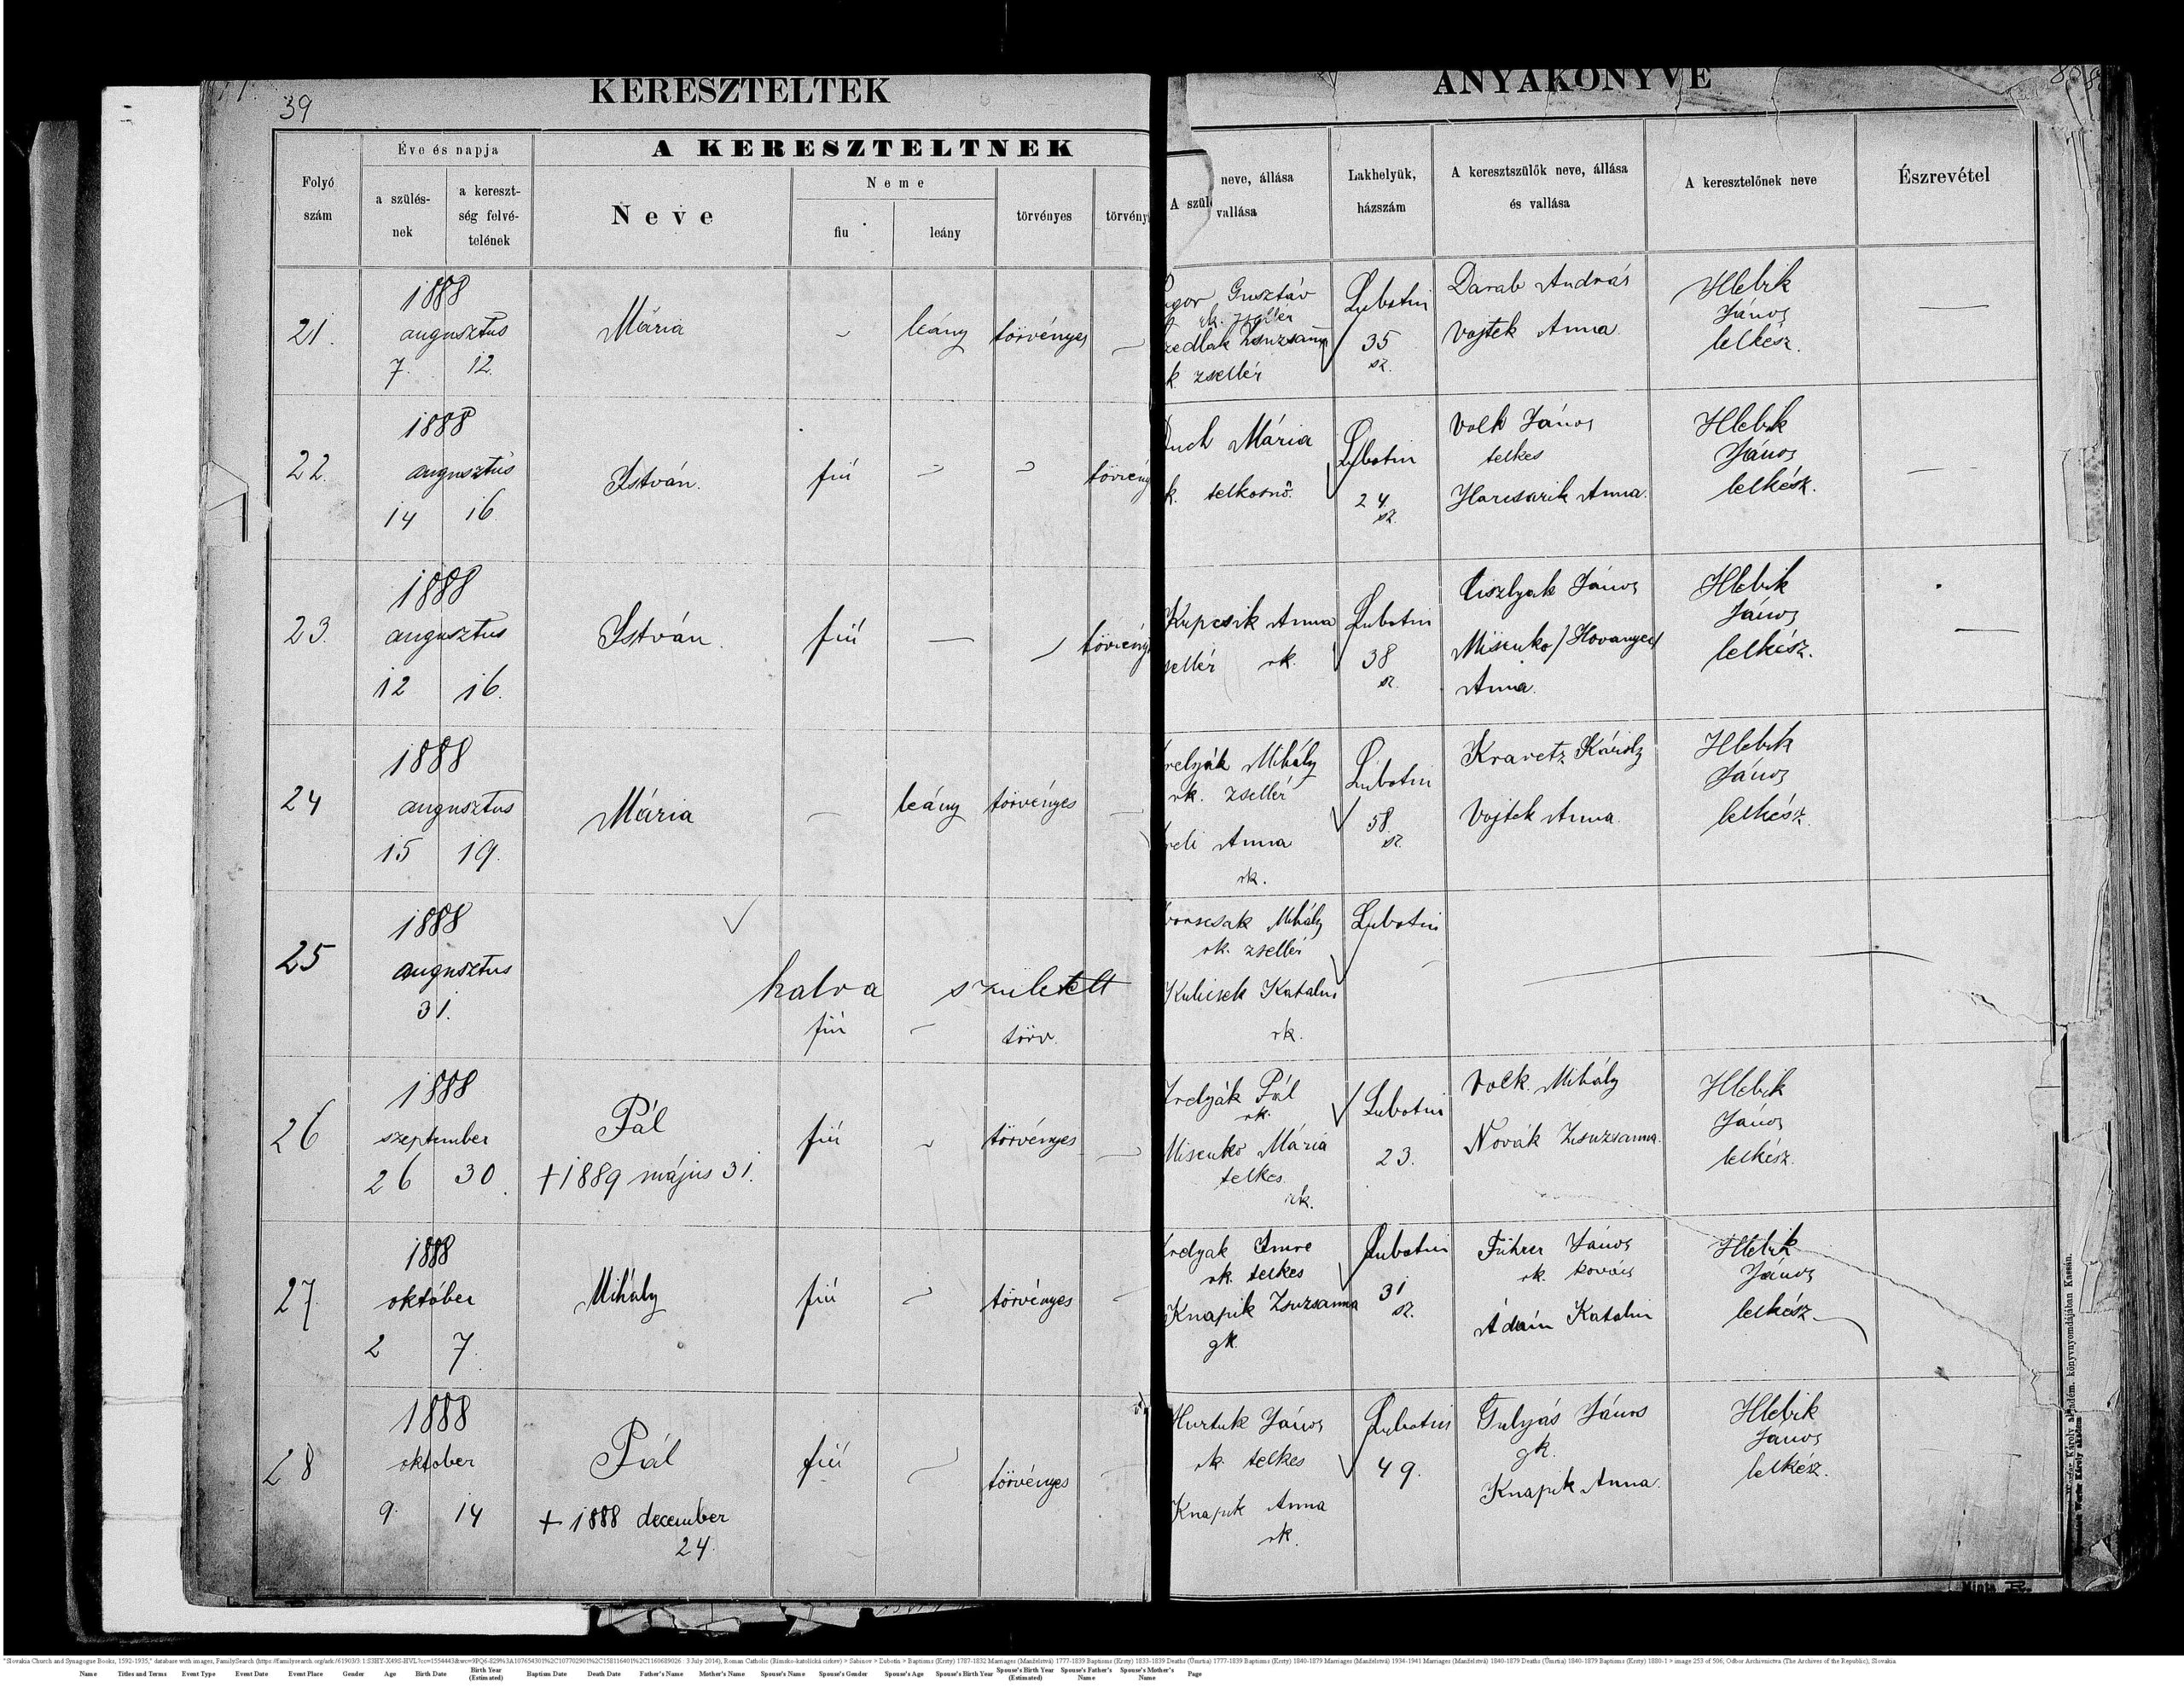 39
KERESZTELTEK
ANYAKÖNYVE
Folyó szám
Éve és napja
a szülésnek
a kereszt-
ség felvé-
telének
A KERESZTELTNEK
Neve
Neme
fiu
leány
törvényes
törvény
A szül
neve, állása
vallása
Lakhelyük,
házszám
A keresztszülők neve, állása
és vallása
A keresztelőnek neve
Észrevétel
21.
1888
augusztus
7. 12.
Mária
leány
törvényes
Gusztáv
rk. zsellér
Zsuzsanna
zsellér
Lubotin
35
sz.
Darab András
Vojtek Anna
Hlebik
János
lelkész.
22.
1888
augusztus
14 16
István.
fiú
törvény
Mária
telkesnő.
Lubotin
24
sz.
Volk János
telkes
Harcsarik Anna.
Hlebik
János
lelkész.
23.
1888
augusztus
12 16.
István.
fiú
törvény
Kupcsik Anna
rk.
Lubotin
38
sz.
Ciszlyak János
Misenko/Hovanyecz
Anna.
Hlebik
János
lelkész.
24
1888
augusztus
15 19.
Mária
leány
törvényes
Mihály
rk. zsellér
Anna
rk.
Lubotin
58
sz.
Kravetz Károly
Vojtek Anna
Hlebik
János
lelkész.
25
1888
augusztus
31.
halva született
fiú
törv.
Mihály
rk. zsellér
Kulicsek Katalin
rk.
Lubotin
26
1888
szeptember
26 30.
Pál
+ 1889 május 31.
fiú
törvényes
Pál
rk.
Misenko Mária
telkes.
rk.
Lubotin
23.
Volk. Mihály
Novák Zsuzsanna.
Hlebik
János
lelkész.
27.
1888
október
2 7.
Mihály
fiú
törvényes
Imre
rk. telkes
Knapik Zsuzsanna
gk.
Lubotin
31
sz.
Führer János
rk. kovács
Ádám Katalin
Hlebik
János
lelkész.
28
1888
október
9. 14
Pál
+ 1888 december
24.
fiú
törvényes
Hurtuk János
rk. telkes
Knapik Anna
rk.
Lubotin
49.
Gulyás János
gk.
Knapik Anna.
Hlebik
János
lelkész.
"Slovakia Church and Synagogue Books, 1592-1935," database with images, FamilySearch
Name Titles and Terms Event Type Event Date Event Place Gender Age Birth Date Birth Year (Estimated) Baptism Date Death Date Father's Name Mother's Name Spouse's Name Spouse's Gender Spouse's Age Spouse's Birth Year Spouse's Birth Year (Estimated) Spouse's Father's Name Spouse's Mother's Name Page